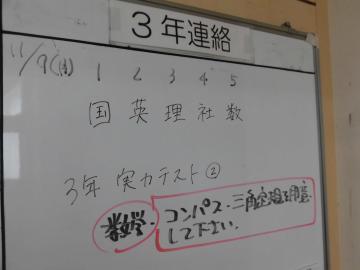 3年連絡
11/9(月) 1 2 3 4 5
国 英 理 社 数
3年 実力テスト②
数学… コンパス・三角定規を用意
して下さい。